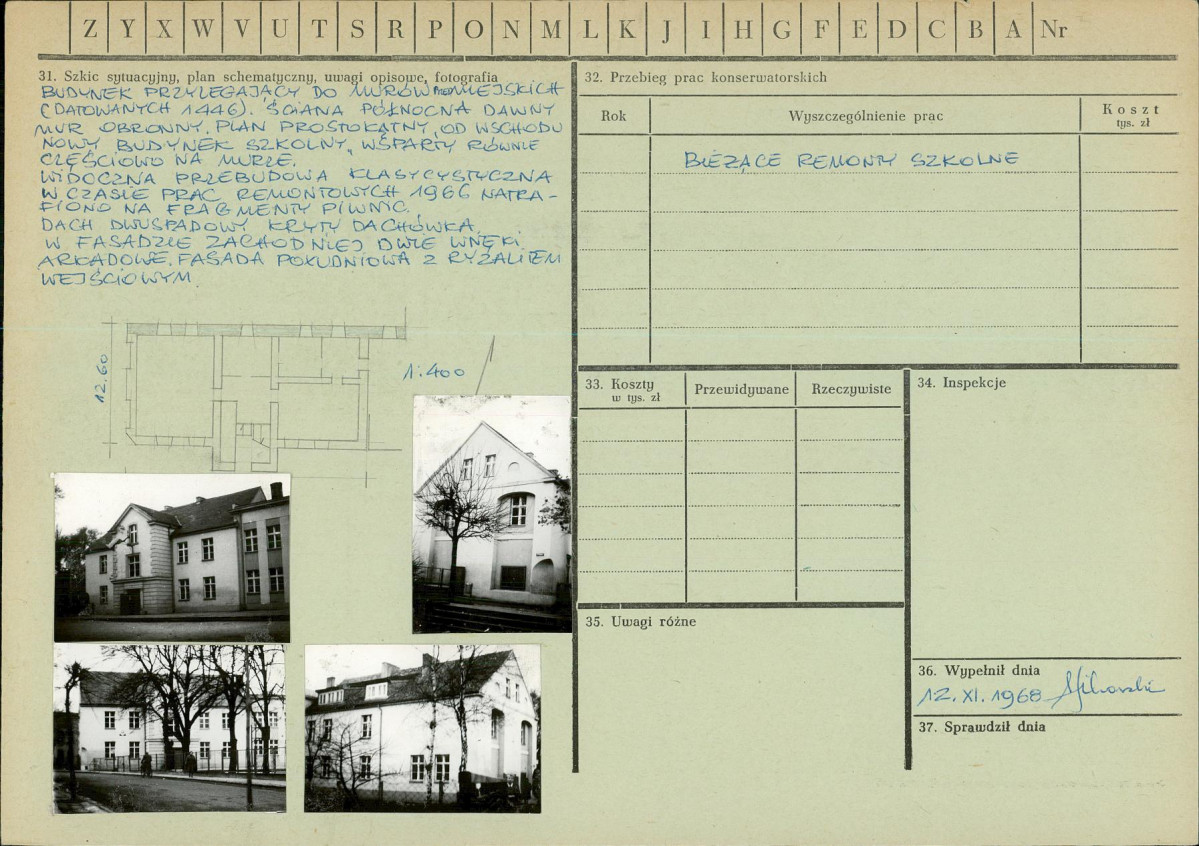 Z Y X W V U T S R P O N M L K J I H G F E D C B A Nr
31. Szkic sytuacyjny, plan schematyczny, uwagi opisowe, fotografia
BUDYNEK PRZYLEGAJĄCY DO MURÓW MIEJSKICH
(DATOWANYCH 1446). ŚCIANA PÓŁNOCNA DAWNY
MUR OBRONNY. PLAN PROSTOKĄTNY, OD WSCHODU
NOWY BUDYNEK SZKOLNY, WSPARTY RÓWNIE
CZĘŚCIOWO NA MURZE.
WIDOCZNA PRZEBUDOWA KLASYCYSTYCZNA
W CZASIE PRAC REMONTOWYCH 1966 NATRA-
FIONO NA FRAGMENTY PIWNIC.
DACH DWUSPADOWY KRYTY DACHÓWKĄ.
W FASADZIE ZACHODNIEJ DWIE WNĘKI
ARKADOWE. FASADA POŁUDNIOWA Z RYZALITEM
WEJŚCIOWYM.
12.60
1:400
32. Przebieg prac konserwatorskich
Rok
Wyszczególnienie prac
Koszt
tys. zł
BIEŻĄCE REMONTY SZKOLNE
33. Koszty
w tys. zł
Przewidywane
Rzeczywiste
34. Inspekcje
35. Uwagi różne
36. Wypełnił dnia
12. XI. 1968
37. Sprawdził dnia